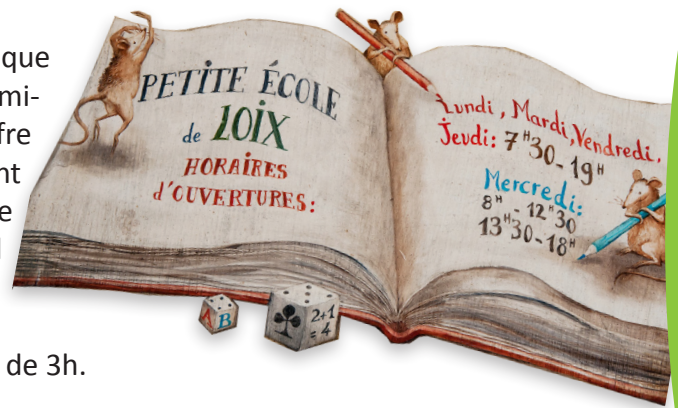 que
mi-
fre
nt
e
de 3h.
PETITE ÉCOLE
de LOIX
HORAIRES
d'OUVERTURES:
Lundi, Mardi, Vendredi,
Jeudi: 7H30-19H
Mercredi:
8H-12H30
13H30-18H
A B
2+1
=4